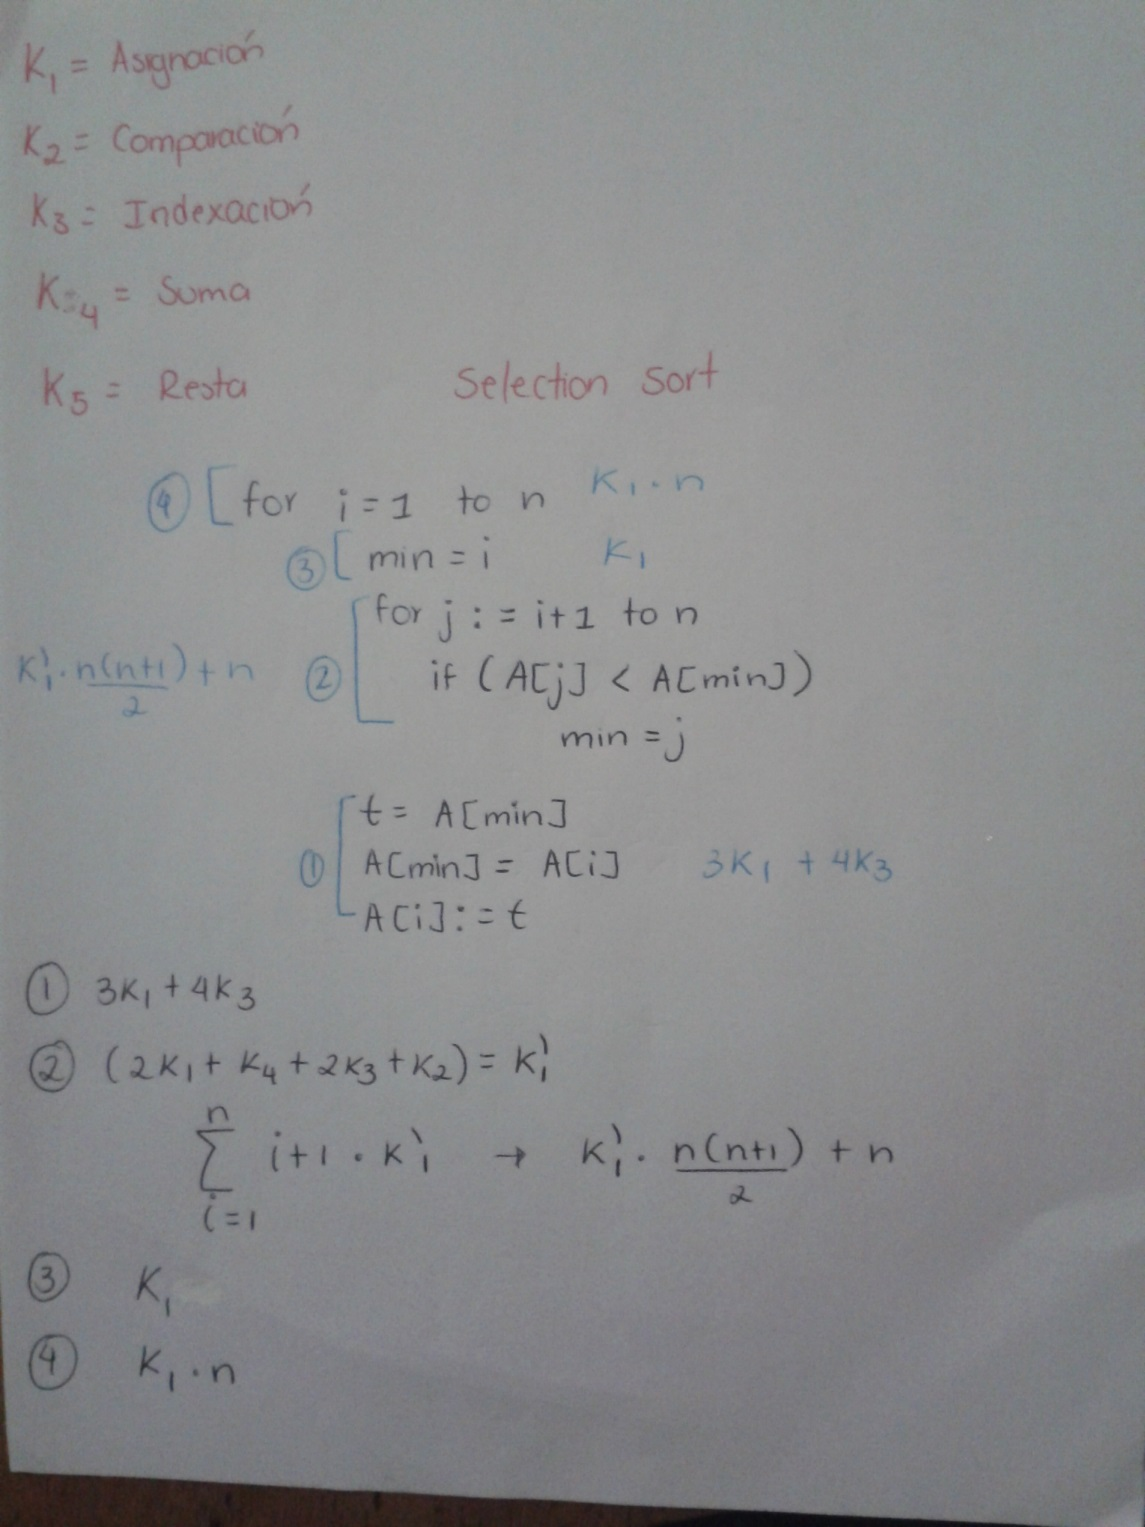 K₁ = Asignación
K₂ = Comparación
K₃ = Indexación
K₄ = Suma
K₅ = Resta
Selection Sort
④ [ for i = 1 to n K₁ · n
③ [ min = i K₁
for j := i+1 to n
K₁' · n(n+1)/2 + n ② [ if (A[j] < A[min])
min = j
t = A[min]
① [ A[min] = A[i] 3K₁ + 4K₃
A[i] := t
① 3K₁ + 4K₃
② (2K₁ + K₄ + 2K₃ + K₂) = K₁'
n
∑ i+1 · K₁' → K₁' · n(n+1)/2 + n
i=1
③ K₁
④ K₁ · n